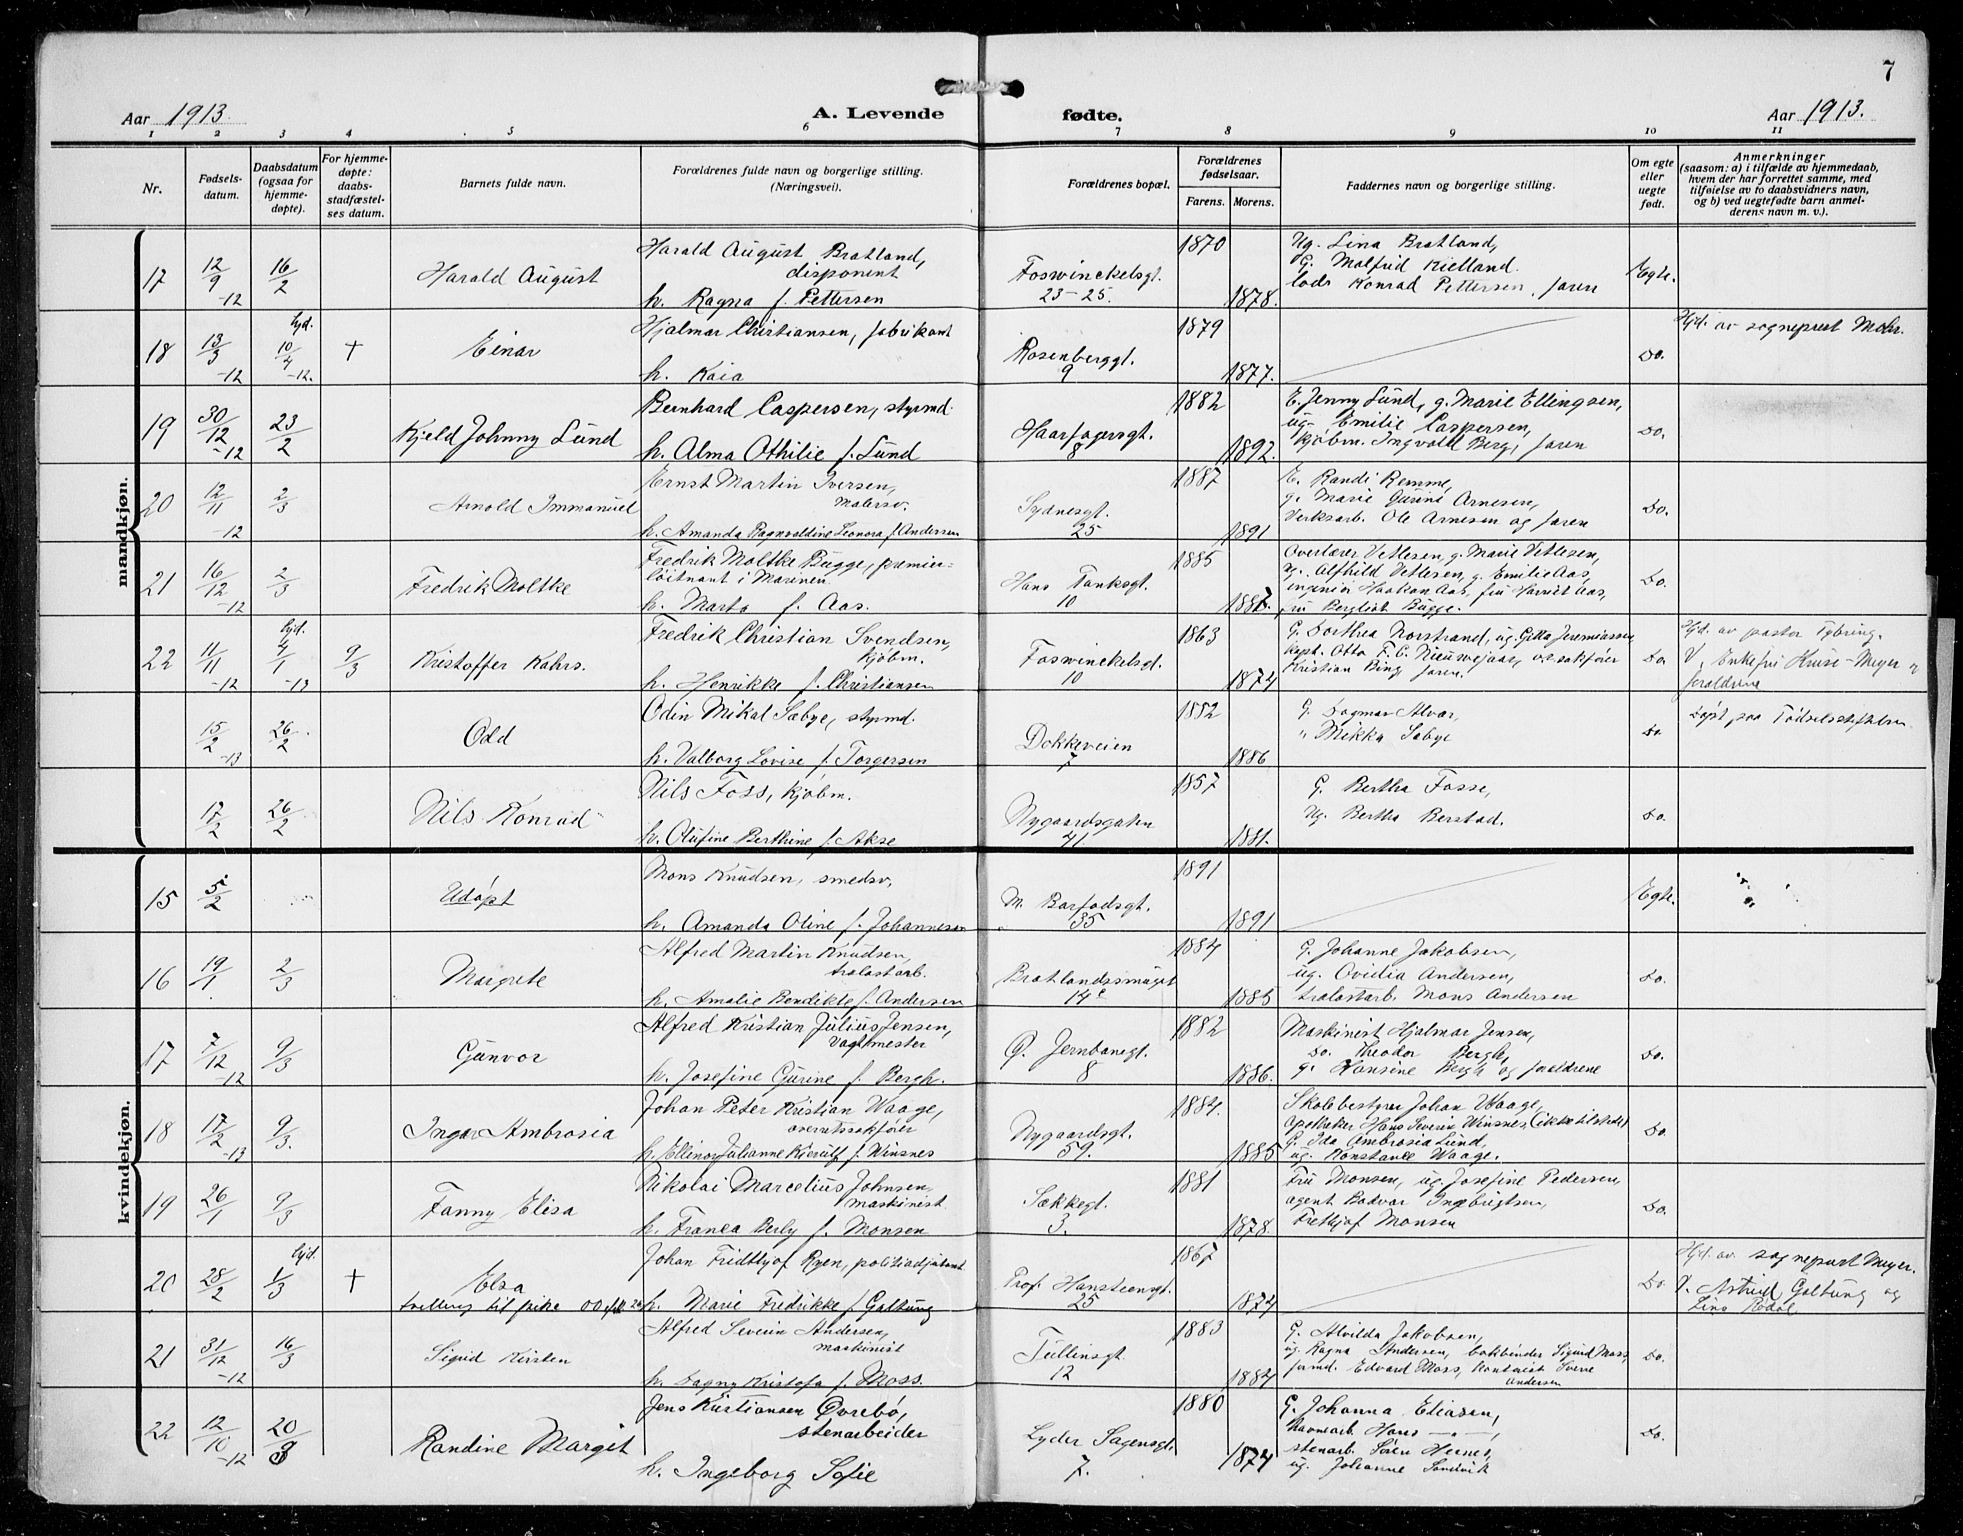 7
Aar 1913.
A. Levende fødte.
Aar 1913.
1 2 3 4 5 6 7 8 9 10 11
Nr.
Fødsels-
datum.
Daabsdatum
(ogsaa for
hjemme-
døpte).
For hjemme-
døpte:
daabs-
stadfæstel-
ses datum.
Barnets fulde navn.
Forældrenes fulde navn og borgerlige stilling.
(Næringsvei).
Forældrenes bopæl.
Forældrenes
fødselsaar.
Farens. Morens.
Faddernes navn og borgerlige stilling.
Om egte
eller
uegte
født.
Anmerkninger
(saasom: a) i tilfælde av hjemmedaab,
hvem der har forrettet samme, med
tilføielse av to daabsvidners navn,
og b) ved uegtefødte barn anmel-
derens navn m. v.).
mandkjøn.
17 12/9 -12 16/2 Harald August
Harald August Bratland,
disponent
h. Ragna f. Pettersen
Foswinckelsgt.
23-25.
1870 1878.
Ug. Lina Bratland,
G. Malfrid Kielland.
lods Konrad Pettersen, faren
Egte.
18 13/3 -12 hjd. 10/4 -12. † Einar
Hjalmar Christiansen, fabrikant
h. Kaia
Rosenberggt.
9
1879 1877.
Do.
Hjd. av sogneprest Mohr.
19 30/12 -12 23/2 Kjeld Johnny Lund
Bernhard Caspersen, styrmd.
h. Alma Othilie f. Lund
Haarfagersgt.
8
1882 1892.
E. Jenny Lund, g. Marie Ellingsen,
ug. Emilie Caspersen,
kjøbm. Ingvald Berg, faren
Do.
20 12/11 -12 2/3 Arnold Immanuel
Ernst Martin Iversen,
malersv.
h. Amanda Ragnvaldine Leonora f. Andersen
Sydnesgt.
25
1887 1891
E. Randi Remme,
g. Marie Gurine Arnesen,
Verksarb. Ole Arnesen og faren
Do.
21 16/12 -12 2/3 Fredrik Moltke
Fredrik Moltke Bugge, premier=
løitnant i Marinen.
h. Marta f. Aas.
Hans Tanksgt.
10
1885
Overlærer Vetlesen, g. Marie Vetlesen,
ug. Alfhild Vetlesen, g. Emilie Aas,
ingeniør Haakon Aas, fru Harriet Aas,
fru Bergliot Bugge.
Do.
22 11/11 -12 hjd. 4/1 -13 9/3 Kristoffer Kahrs.
Fredrik Christian Svendsen,
kjøbm.
h. Henrikke f. Christiansen
Foswinckelsgt.
10
1863 1874
G. Dorthea Norstrand, ug. Gitta Jeremiassen
kapt. Otto F. C. Nieuwejaar, o.r.sakfører
Kristian Bing, faren.
Do
Hjd. av pastor Tybring.
V. Enkefru Kruse-Meyer
foraldrene
15/2 -13 26/2 Odd
Odin Mikal Sæbye, styrmd.
h. Valborg Lovise f. Torgersen
Dokkeveien
7
1882 1886
G. Dagmar Alvær,
" Mikka Sæbye
Do
Døpt paa Fødselsstiftelsen
17/2 26/2 Nils Konrad
Nils Foss, kjøbm.
h. Olufine Berthine f. Akse
Nygaardsgaten
41.
1857 1881.
G. Bertha Fosse,
Ug. Bertha Berstad.
Do.
kvindekjøn.
15 5/2 Udøpt
Mons Knudsen, smedsv.
h. Amanda Oline f. Johannesen
M. Barfodsgt.
35
1891 1891
Egte.
16 19/1 2/3 Margrete
Alfred Martin Knudsen,
tralastarb.
h. Amalie Bendikte f. Andersen
Bratlandssmuget
14c
1884 1885
G. Johanne Jakobsen
ug. Ovidia Andersen,
tralastarb. Mons Andersen
Do.
17 7/12 -12 9/3 Gunvor
Alfred Kristian Julius Jensen,
Vagtmester
h. Josefine Gurine f. Bergh.
Ø. Jernbanegt.
8
1882 1886.
Maskinist Hjalmar Jensen,
Do. Theodor Bergh,
g. Hansine Bergh og foraldrene
Do.
18 17/2 -13 9/3. Inger Ambrosia
Johan Peter Kristian Waage,
overretssakfører
h. Ellinor Julianne Kierulf f. Winsnes
Nygaardsgt.
59.
1884. 1885
Skolebestyrer Johan Waage,
apotheker Hans Severin Winsnes, (ikke tilstede)
G. Ida Ambrosia Lund,
ug. Konstance Waage.
Do.
19 26/1 9/3 Fanny Elisa
Nikolai Marcelius Johnsen,
maskinist.
h. Franca Berly f. Monsen
Sækkegt.
3.
1881 1878.
Fru Monsen, ug. Josefine Pedersen,
agent Bødvar Ingebrigtsen,
Frethjof Monsen
Do.
20 28/2 hjd. 1/3 † Elsa
tvilling til pike
Johan Fridthjof Ryen, politiadjutant
h. Marie Fredrikke f. Galtung
Prof. Hansteensgt.
25
1867 1874
Do
Hjd. av sogneprest Meyer.
V. Astrid Galtung og
Lina Rødal
21 31/12 -12 16/3 Sigrid Kirsten
Alfred Severin Andersen,
maskinist
h. Dagny Kristofa f. Moss.
Tullinsgt.
12
1883 1884
G. Alvilda Jakobsen,
ug. Ragna Andersen, bokbinder Sigurd Moss,
formd. Edvard Moss, kontorist Sverre
Andersen
Do.
22 12/10 -12 20/3 Randine Margit
Jens Kristiansen Øvrebø,
stenarbeider
h. Ingeborg Sofie
Lyder Sagensgt.
7.
1880 1874
G. Johanna Eliasen,
havnearb. Hans — " —,
stenarb. Søren Hernes,
ug. Johanne Sandvik
Do.